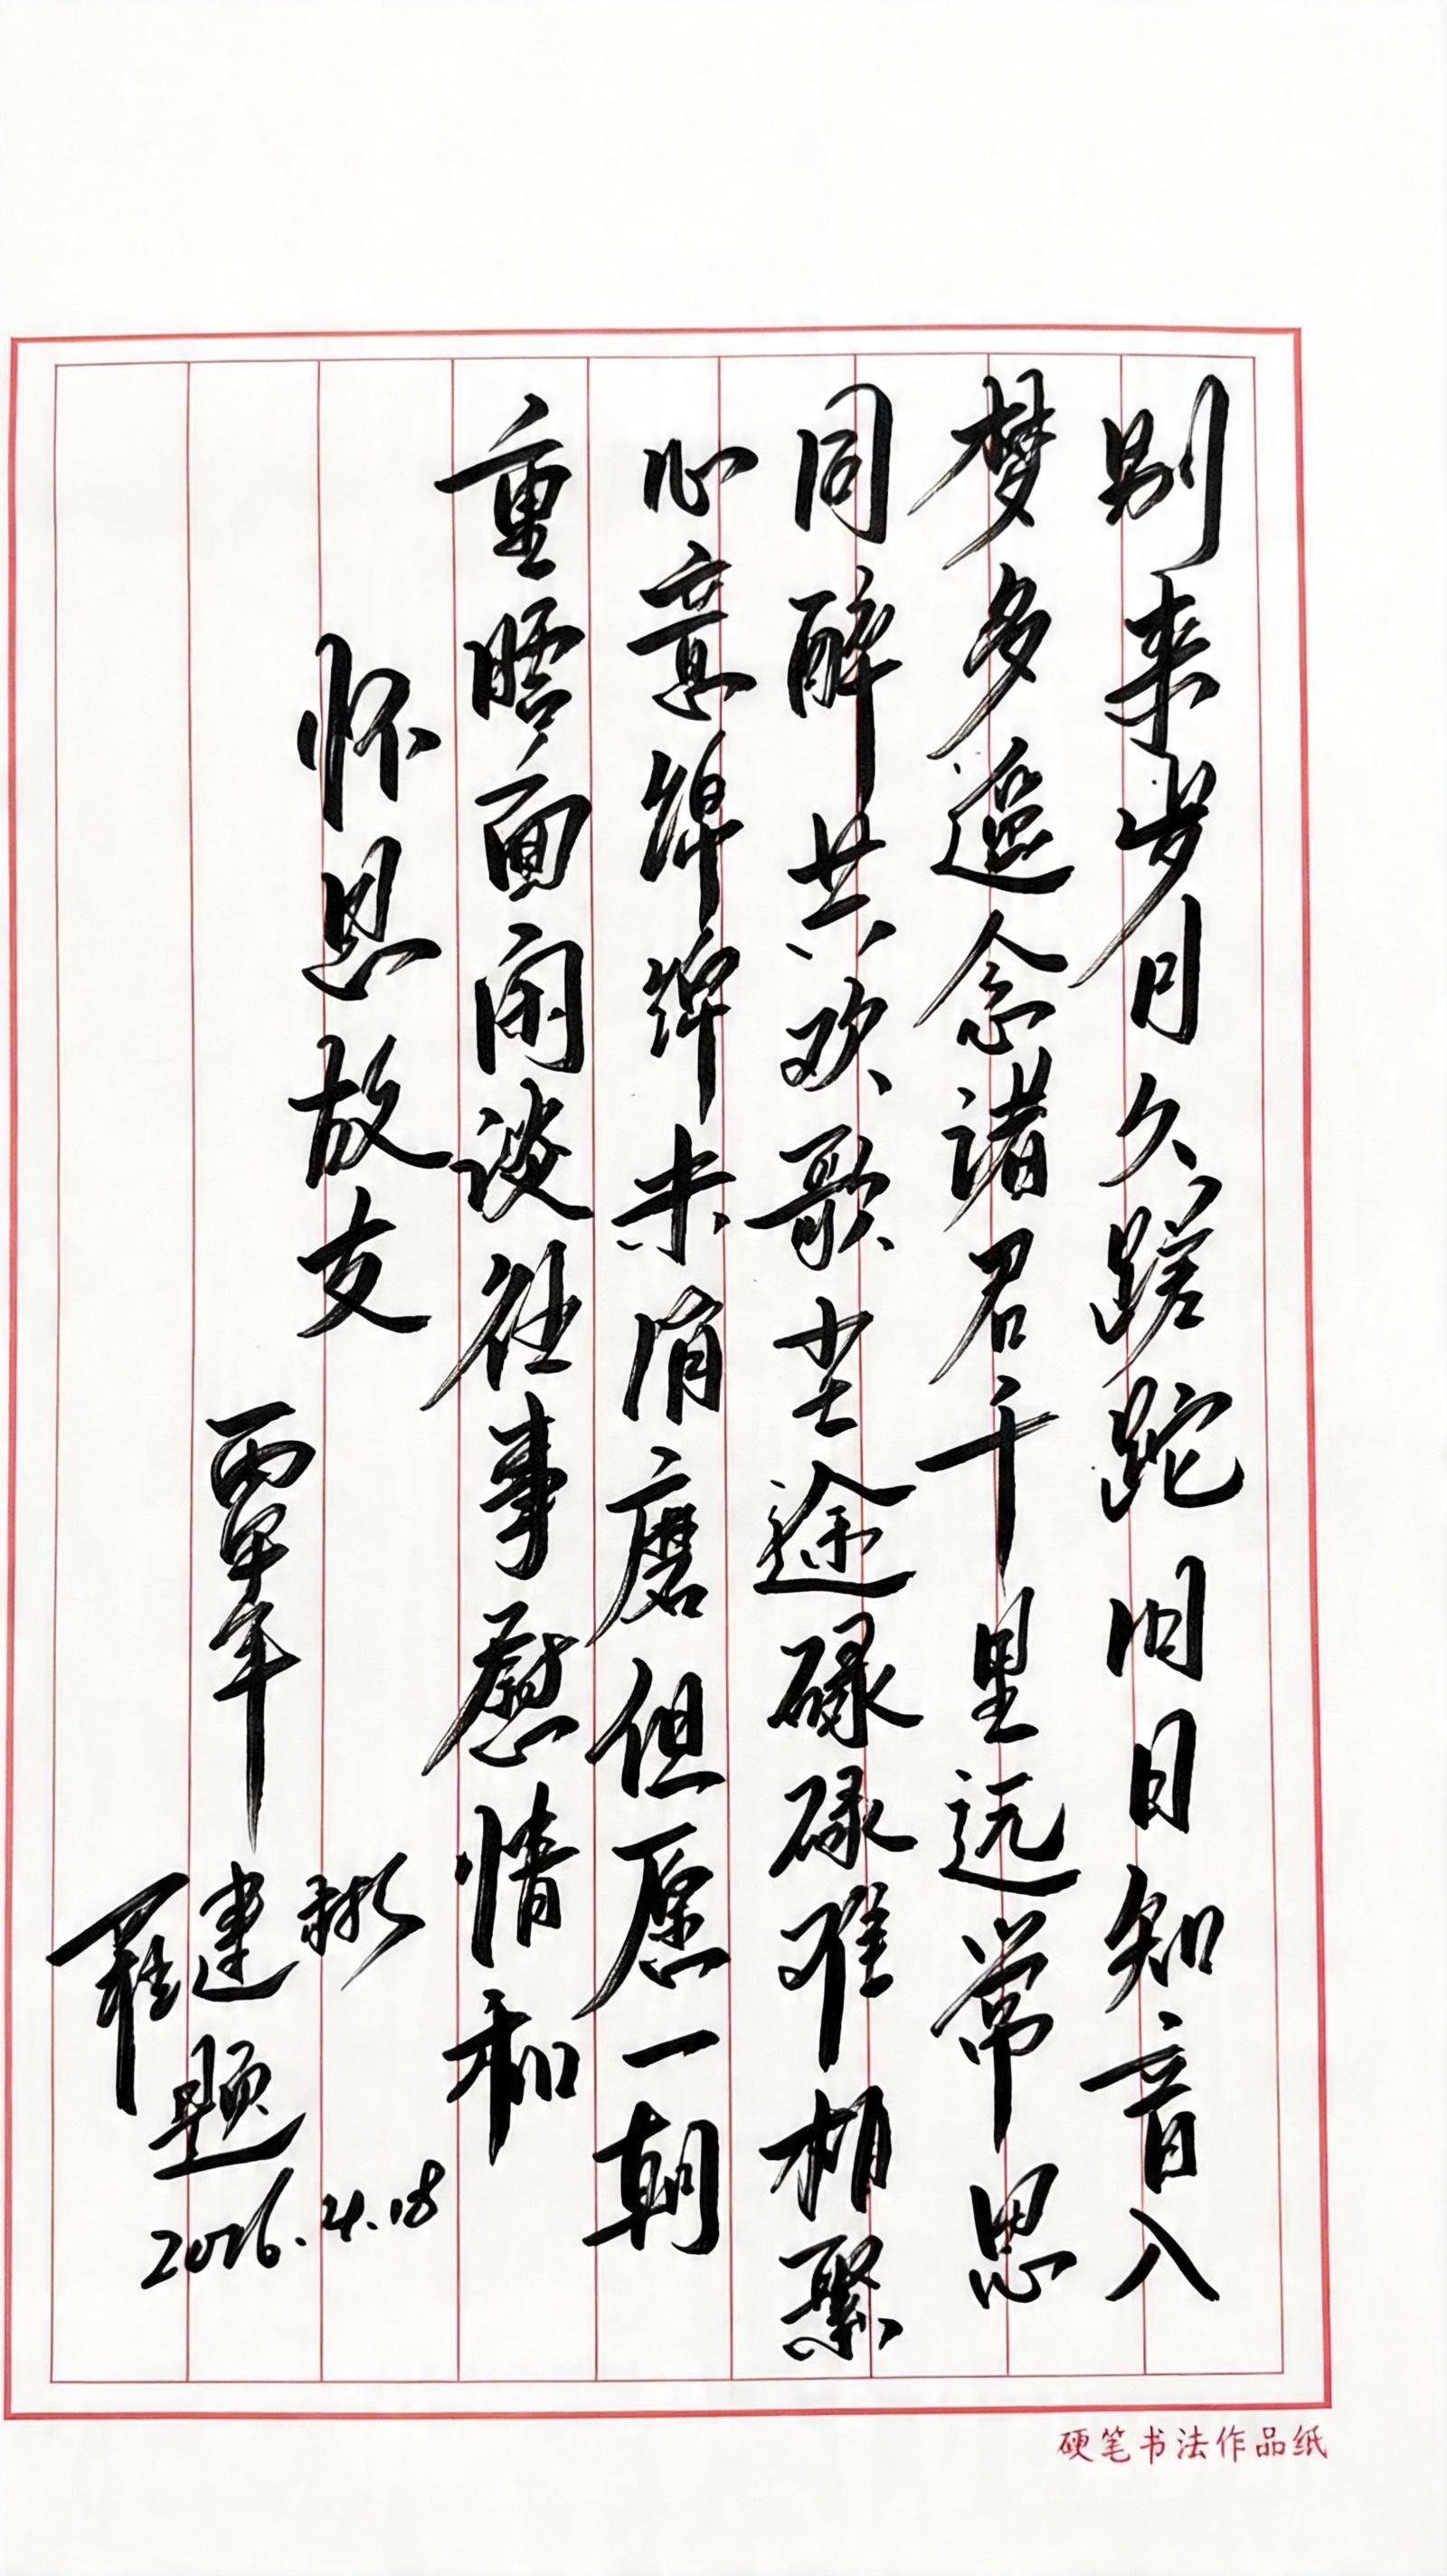 别来岁月久蹉跎旧日知音入
梦多遥念诸君千里远常思
同醉共欢歌尘途碌碌难相聚
心意绵绵未有磨但愿一朝
重晤面闲谈往事慰情和
怀思故友
覃年
建彬
题
2026.4.18
硬笔书法作品纸